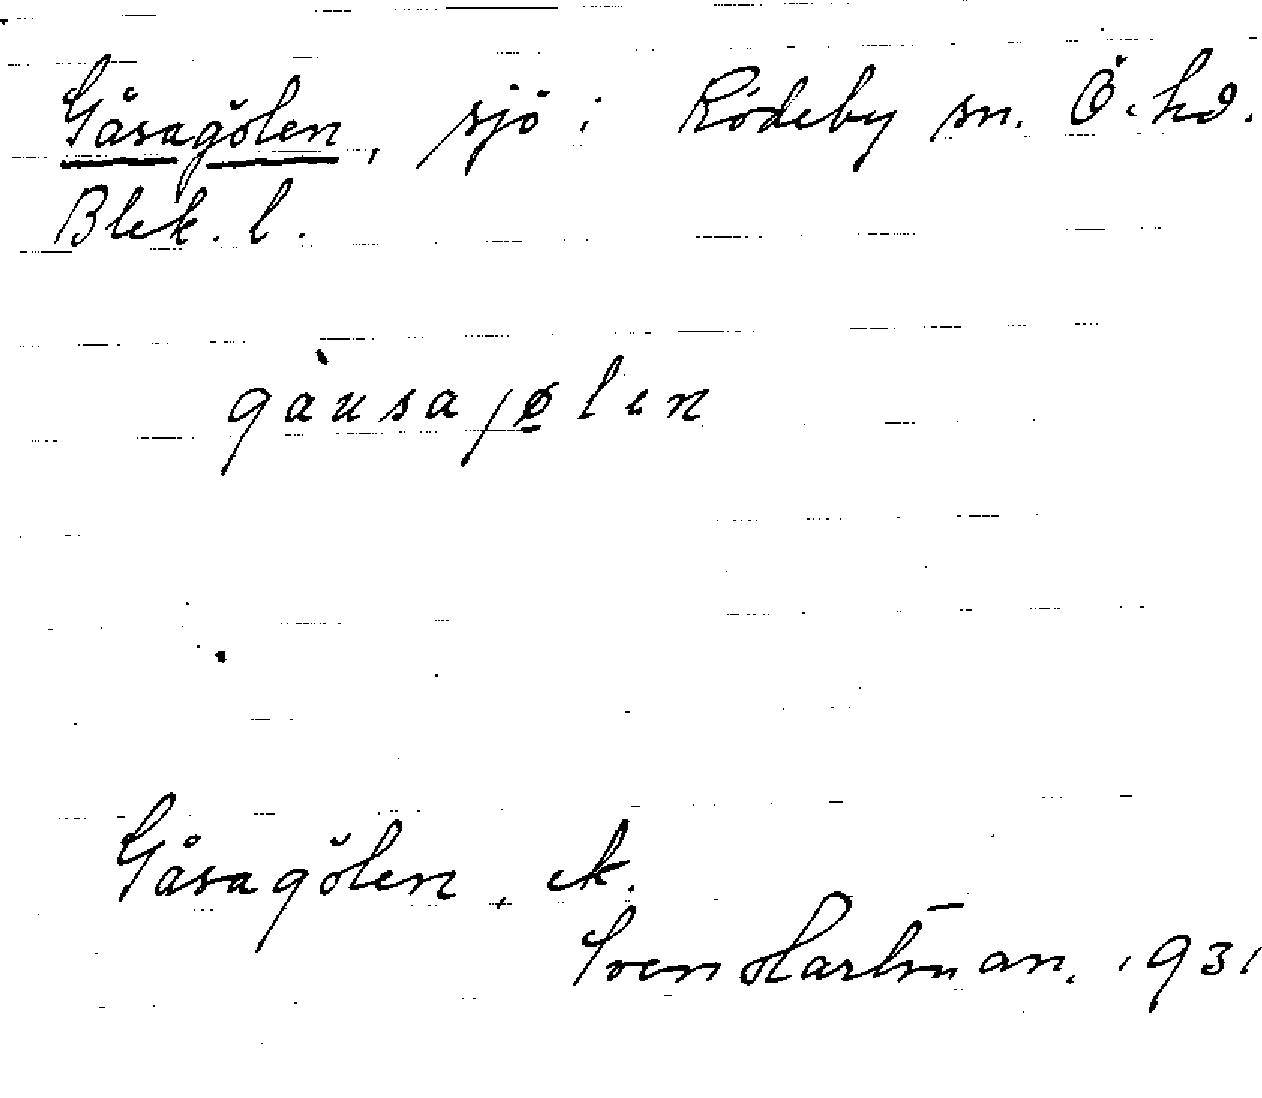 Gåsagölen, sjö i Rödeby sn. Ö. hd.
Blek. l.
gàusajø̱len
Gåsagölen, ek.
Sven Hartman. 1931